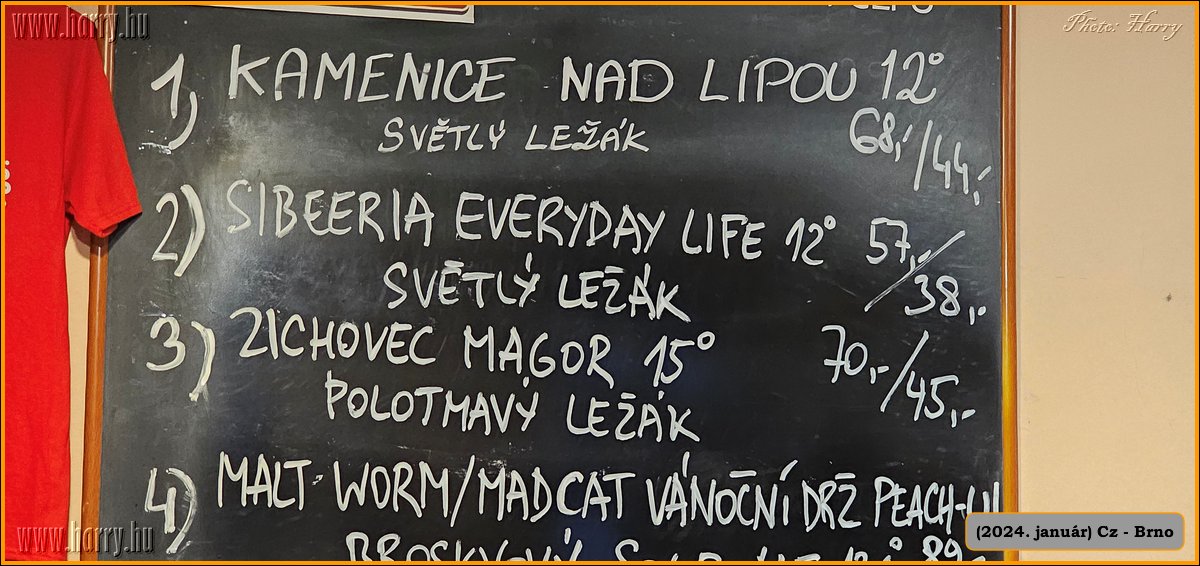 www.harry.hu
Photo: Harry
1, KAMENICE NAD LIPOU 12°
SVĚTLÝ LEŽÁK 68,-/44,-
2) SIBEERIA EVERYDAY LIFE 12° 57,-/38,-
SVĚTLÝ LEŽÁK
3) ZICHOVEC MAGOR 15° 70,-/45,-
POLOTMAVÝ LEŽÁK
4) MALT WORM/MADCAT VÁNOČNÍ DRŽ
www.harry.hu
(2024. január) Cz - Brno